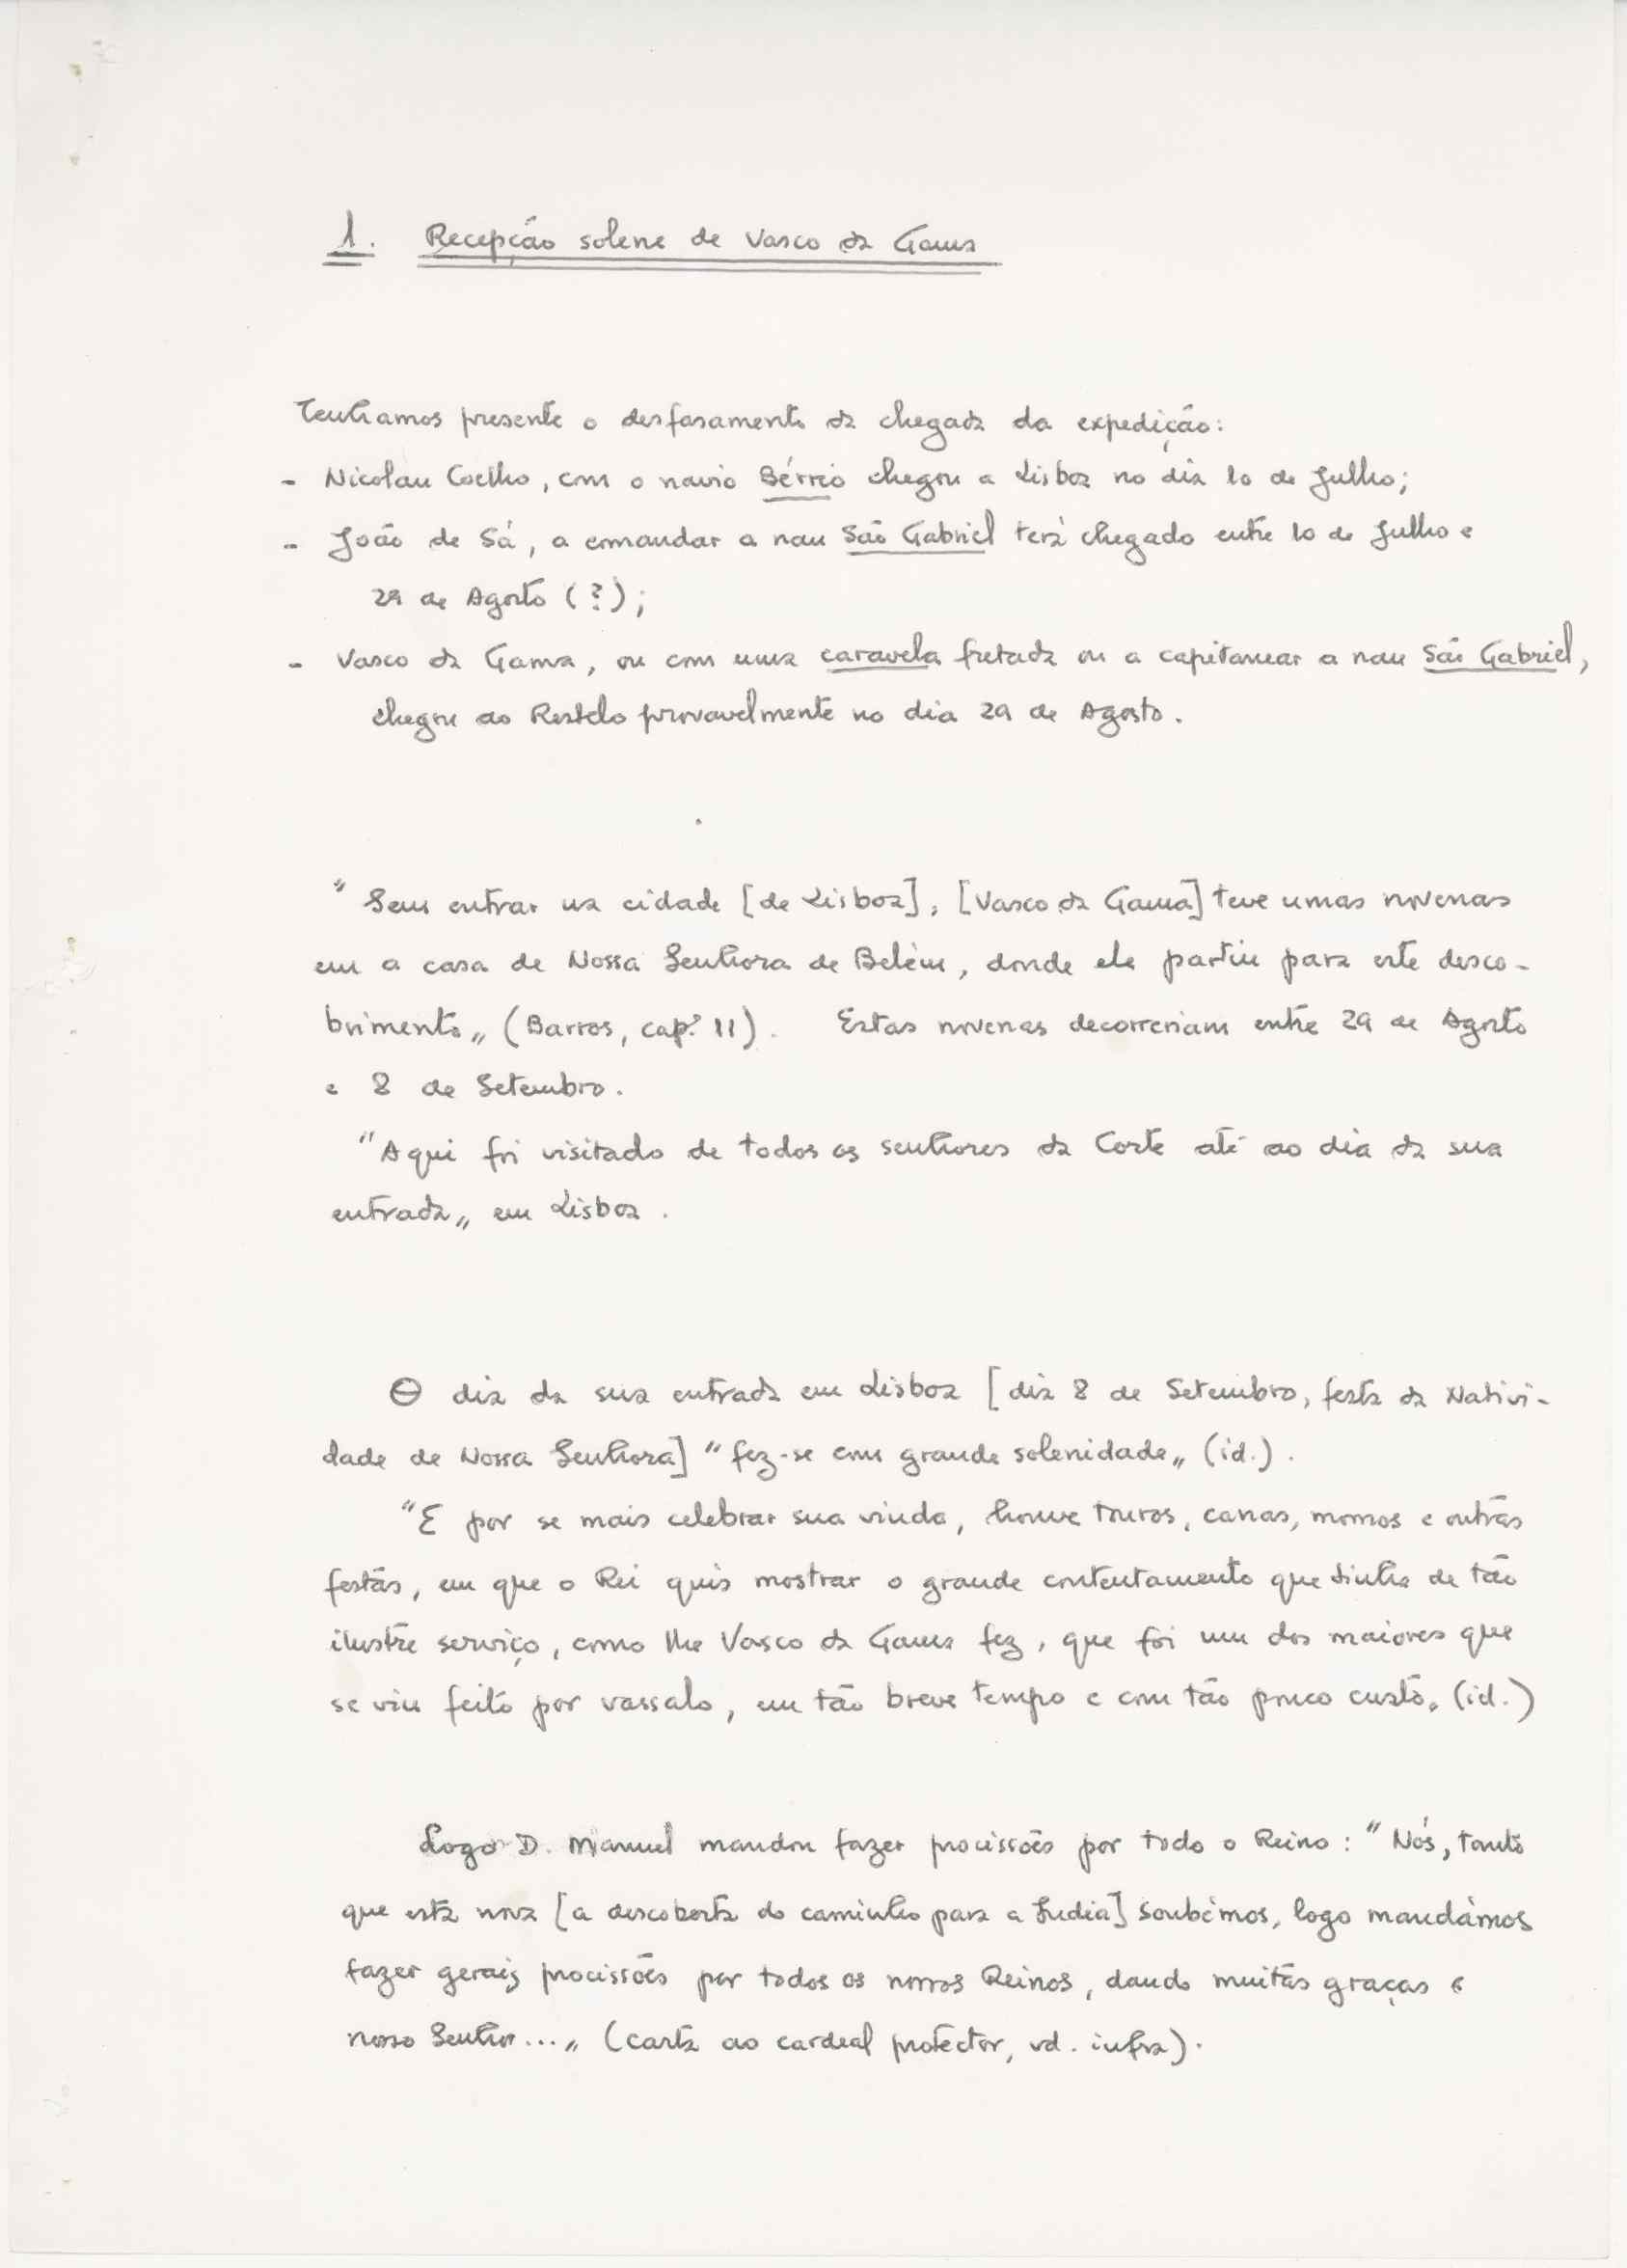 1. Recepção solene de Vasco da Gama
Tenhamos presente o desfasamento da chegada da expedição:
- Nicolau Coelho, com o navio Bérrio chegou a Lisboa no dia 10 de Julho;
- João de Sá, a comandar a nau São Gabriel terá chegado entre 10 de Julho e
29 de Agosto (?);
- Vasco da Gama, ou com uma caravela fretada ou a capitanear a nau São Gabriel,
chegou ao Restelo provavelmente no dia 29 de Agosto.
"Sem entrar na cidade [de Lisboa], [Vasco da Gama] teve umas novenas
em a casa de Nossa Senhora de Belém, donde ele partiu para este desco-
brimento„ (Barros, cap.º 11). Estas novenas decorreriam entre 29 de Agosto
e 8 de Setembro.
"Aqui foi visitado de todos os senhores da Corte até ao dia da sua
entrada„ em Lisboa.
O dia da sua entrada em Lisboa [dia 8 de Setembro, festa da Nativi-
dade de Nossa Senhora] "fez-se com grande solenidade„ (id.).
"E por se mais celebrar sua vinda, houve touros, canas, momos e outras
festas, em que o Rei quis mostrar o grande contentamento que tinha de tão
ilustre serviço, como lhe Vasco da Gama fez, que foi um dos maiores que
se viu feito por vassalo, em tão breve tempo e com tão pouco custo„ (id.)
Logo D. Manuel mandou fazer procissões por todo o Reino: "Nós, tanto
que esta nova [a descoberta do caminho para a Índia] soubémos, logo mandámos
fazer gerais procissões por todos os nossos Reinos, dando muitas graças a
nosso Senhor...„ (carta ao cardeal protector, vd. infra).